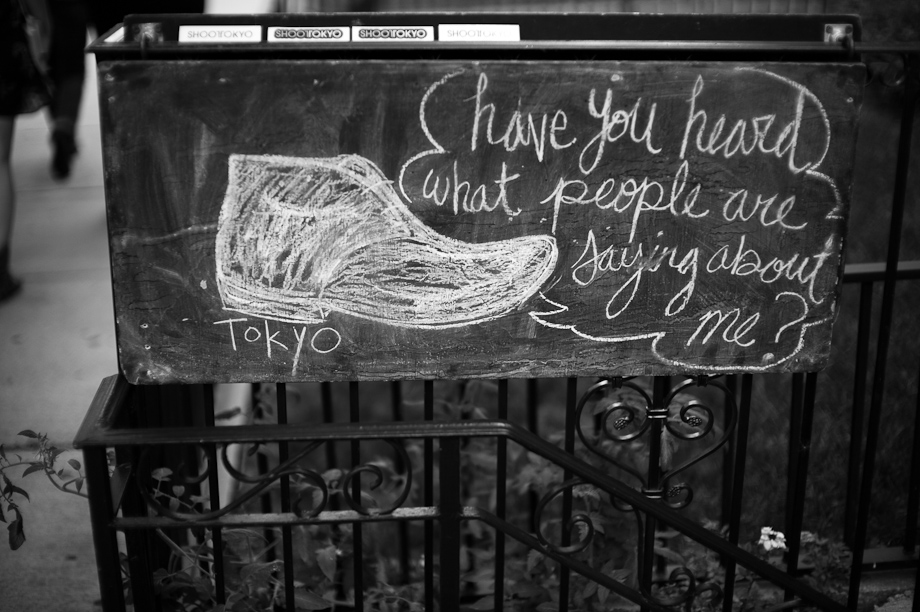 SHOOTTOKYO SHOOTTOKYO SHOOTTOKYO SHOOTTOKYO
have you heard
what people are
saying about
me?
TOKYO